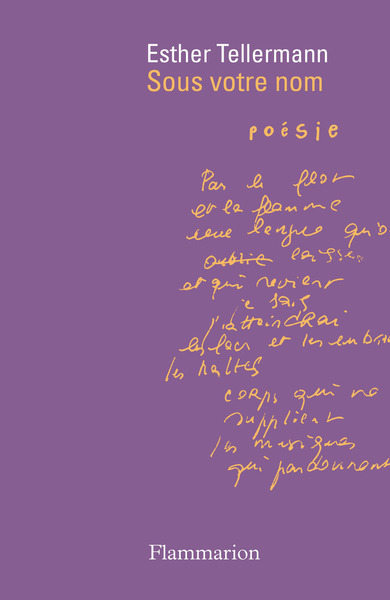 Esther Tellermann
Sous votre nom
poésie
Par le flot
et la flamme
une langue qu'o
oublie laisse
et qui revient
je sais
j'attaindrai
les lacs et les embru
les haltes
corps qui ne
supplient
les musiques
qui pardonnent
Flammarion